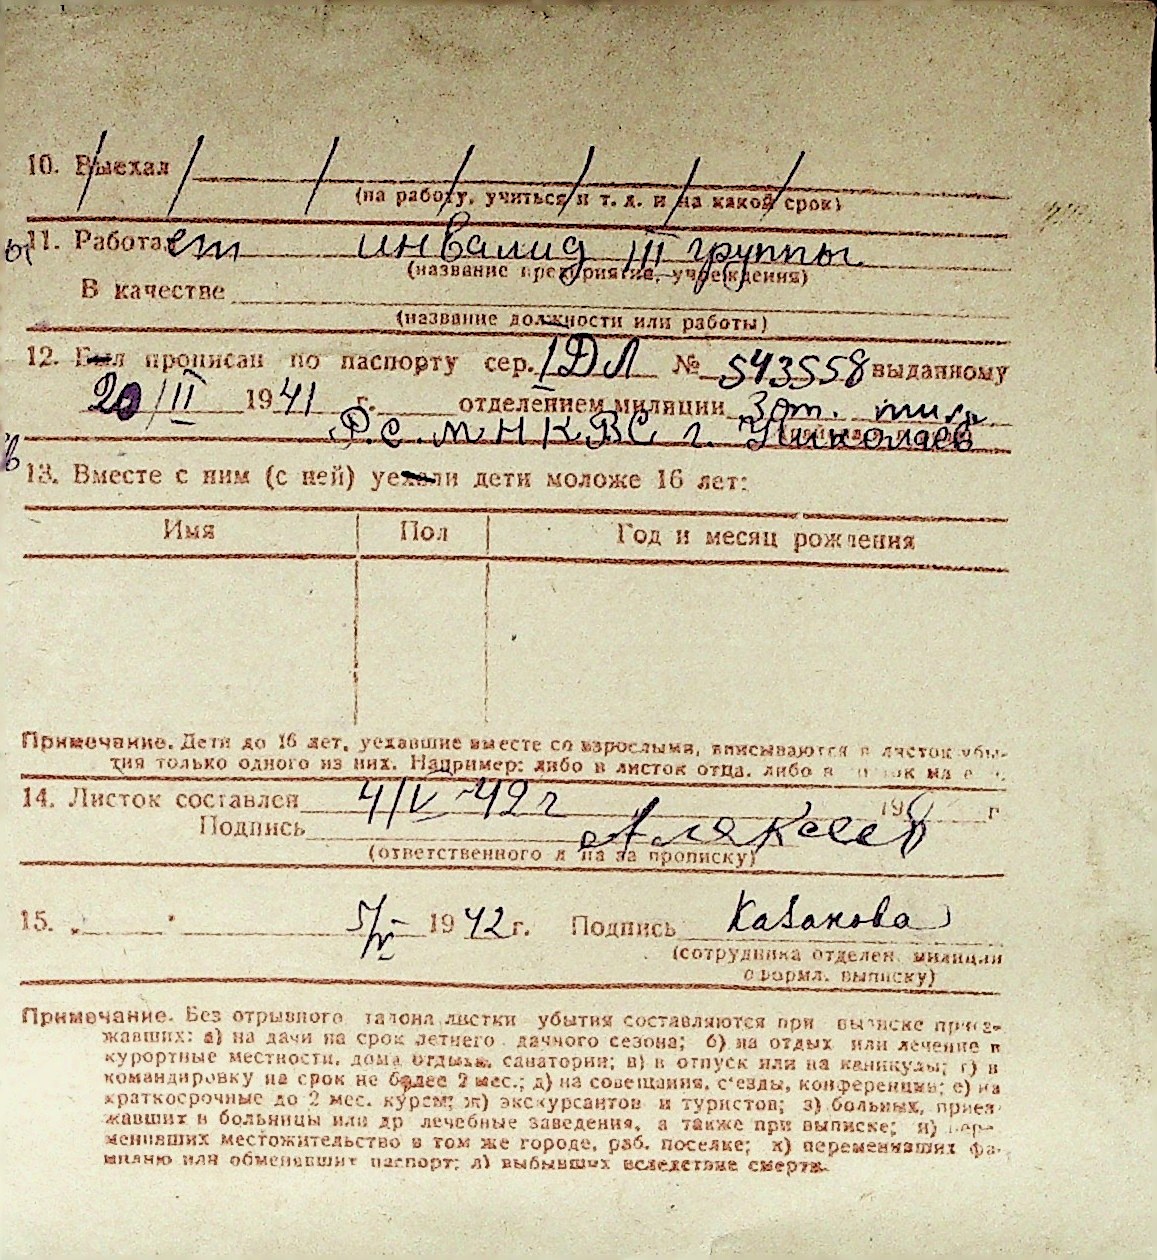 10. Выехал
(на работу, учиться и т. д. и на какой срок)
11. Работает инвалид III группы
(название предприятия, учреждения)
В качестве
(название должности или работы)
12. Был прописан по паспорту сер. I ДЛ № 543558 выданному
20/II 1941 г. отделением милиции 3 от. мил.
Р.С.М НКВС г. Николаев
13. Вместе с ним (с ней) уехали дети моложе 16 лет:
Имя Пол Год и месяц рождения
Примечание. Дети до 16 лет, уехавшие вместе со взрослыми, вписываются в листок убы-
тия только одного из них. Например: либо в листок отца, либо в
14. Листок составлен 4/V-42 г 19 г
Подпись Алексеев
(ответственного за прописку)
15. 5/V 1942 г. Подпись Казакова
(сотрудника отделен. милиции
оформл. выписку)
Примечание. Без отрывного талона листки убытия составляются при выписке приез-
жавших: а) на дачи на срок летнего дачного сезона; б) на отдых или лечение в
курортные местности, дома отдыха, санатории; в) в отпуск или на каникулы; г) в
командировку на срок не более 2 мес.; д) на совещания, с'езды, конференции; е) на
краткосрочные до 2 мес. курсы; ж) экскурсантов и туристов; з) больных, приез-
жавших в больницы или др лечебные заведения, а также при выписке; и) пере-
менивших местожительство в том же городе, раб. поселке; к) переменивших фа-
милию или обменявших паспорт; л) выбывших вследствие смерти.